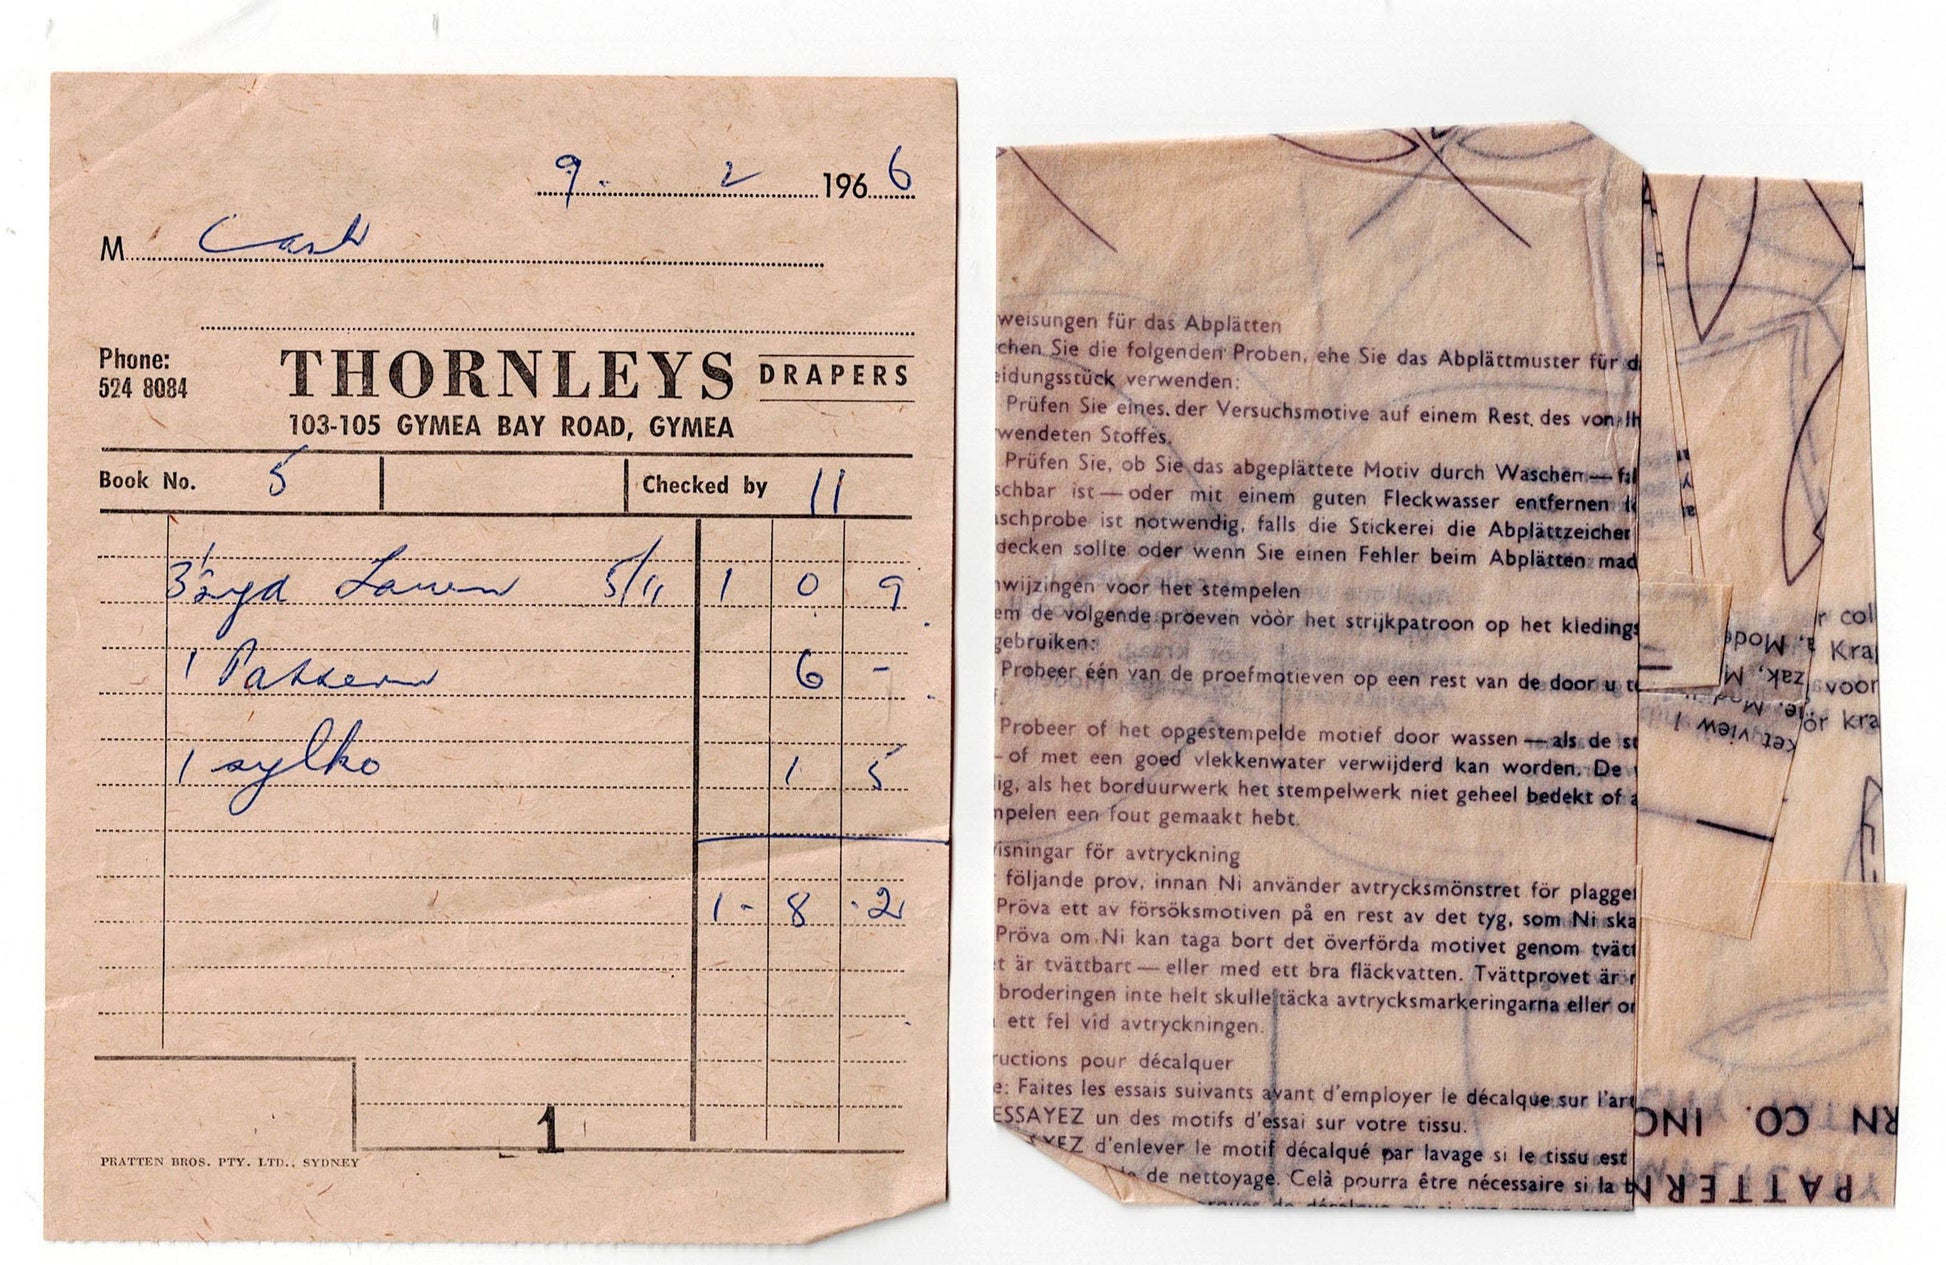 9. 2 1966
M Cash
Phone:
524 8084
THORNLEYS DRAPERS
103-105 GYMEA BAY ROAD, GYMEA
Book No. 5 Checked by 11
3½yd Lawn 5/11 1 0 9
1 Pattern 6 -
1 sylko 1 5
1 - 8 - 2
1
PRATTEN BROS. PTY. LTD., SYDNEY
weisungen für das Abplätten
chen Sie die folgenden Proben, ehe Sie das Abplättmuster für d
eidungsstück verwenden:
Prüfen Sie eines der Versuchsmotive auf einem Rest des von Ih
wendeten Stoffes.
Prüfen Sie, ob Sie das abgeplättete Motiv durch Waschen — fal
schbar ist — oder mit einem guten Fleckwasser entfernen
schprobe ist notwendig, falls die Stickerei die Abplättzeichen
decken sollte oder wenn Sie einen Fehler beim Abplätten mad
wijzingen voor het stempelen
em de volgende proeven vòòr het strijkpatroon op het kledings
gebruiken:
Probeer één van de proefmotieven op een rest van de door u te
Probeer of het opgestempelde motief door wassen — als de st
— of met een goed vlekkenwater verwijderd kan worden. De
ig, als het borduurwerk het stempelwerk niet geheel bedekt of a
mpelen een fout gemaakt hebt.
isningar för avtryckning
följande prov, innan Ni använder avtrycksmönstret för plagget
Pröva ett av försöksmotiven på en rest av det tyg, som Ni ska
Pröva om Ni kan taga bort det överförda motivet genom tvätt
t är tvättbart — eller med ett bra fläckvatten. Tvättprovet är
broderingen inte helt skulle täcka avtrycksmarkeringarna eller or
ett fel vid avtryckningen.
ructions pour décalquer
e: Faites les essais suivants avant d'employer le décalque sur l'art
ESSAYEZ un des motifs d'essai sur votre tissu.
YEZ d'enlever le motif décalqué par lavage si le tissu est
de nettoyage. Celà pourra être nécessaire si la
r col
Kra
voor
ör kra
a, Mode
zak, M
ket view 1
RN CO. INC
PATTERN